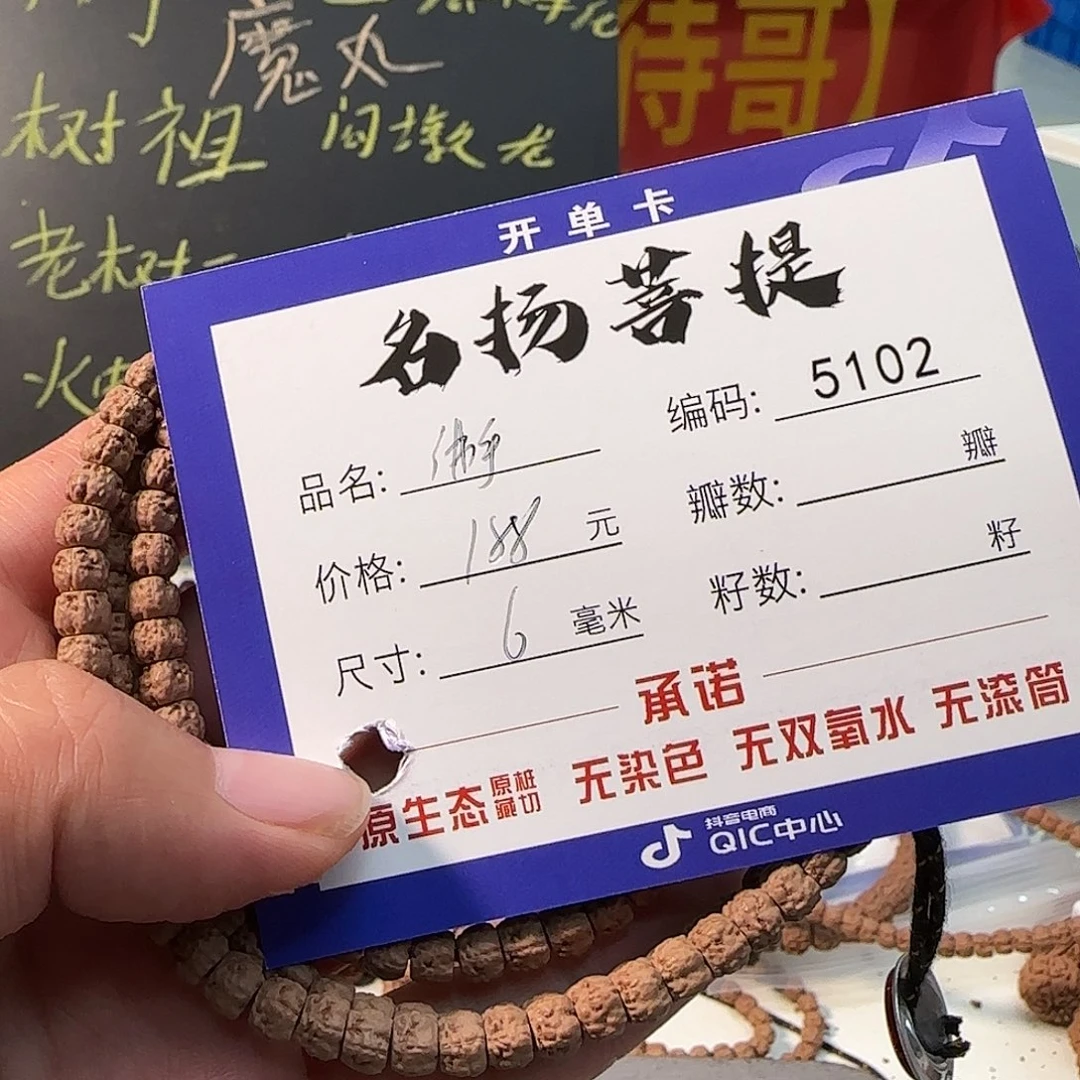 魔丸
树祖 闷墩老
老树
火
侍哥】
开单卡
名扬菩提
编码: 5102
品名: 佛手
瓣数: 瓣
价格: 188 元
籽数: 籽
尺寸: 6 毫米
承诺
原生态 原桩藏切 无染色 无双氧水 无滚筒
抖音电商
QIC中心